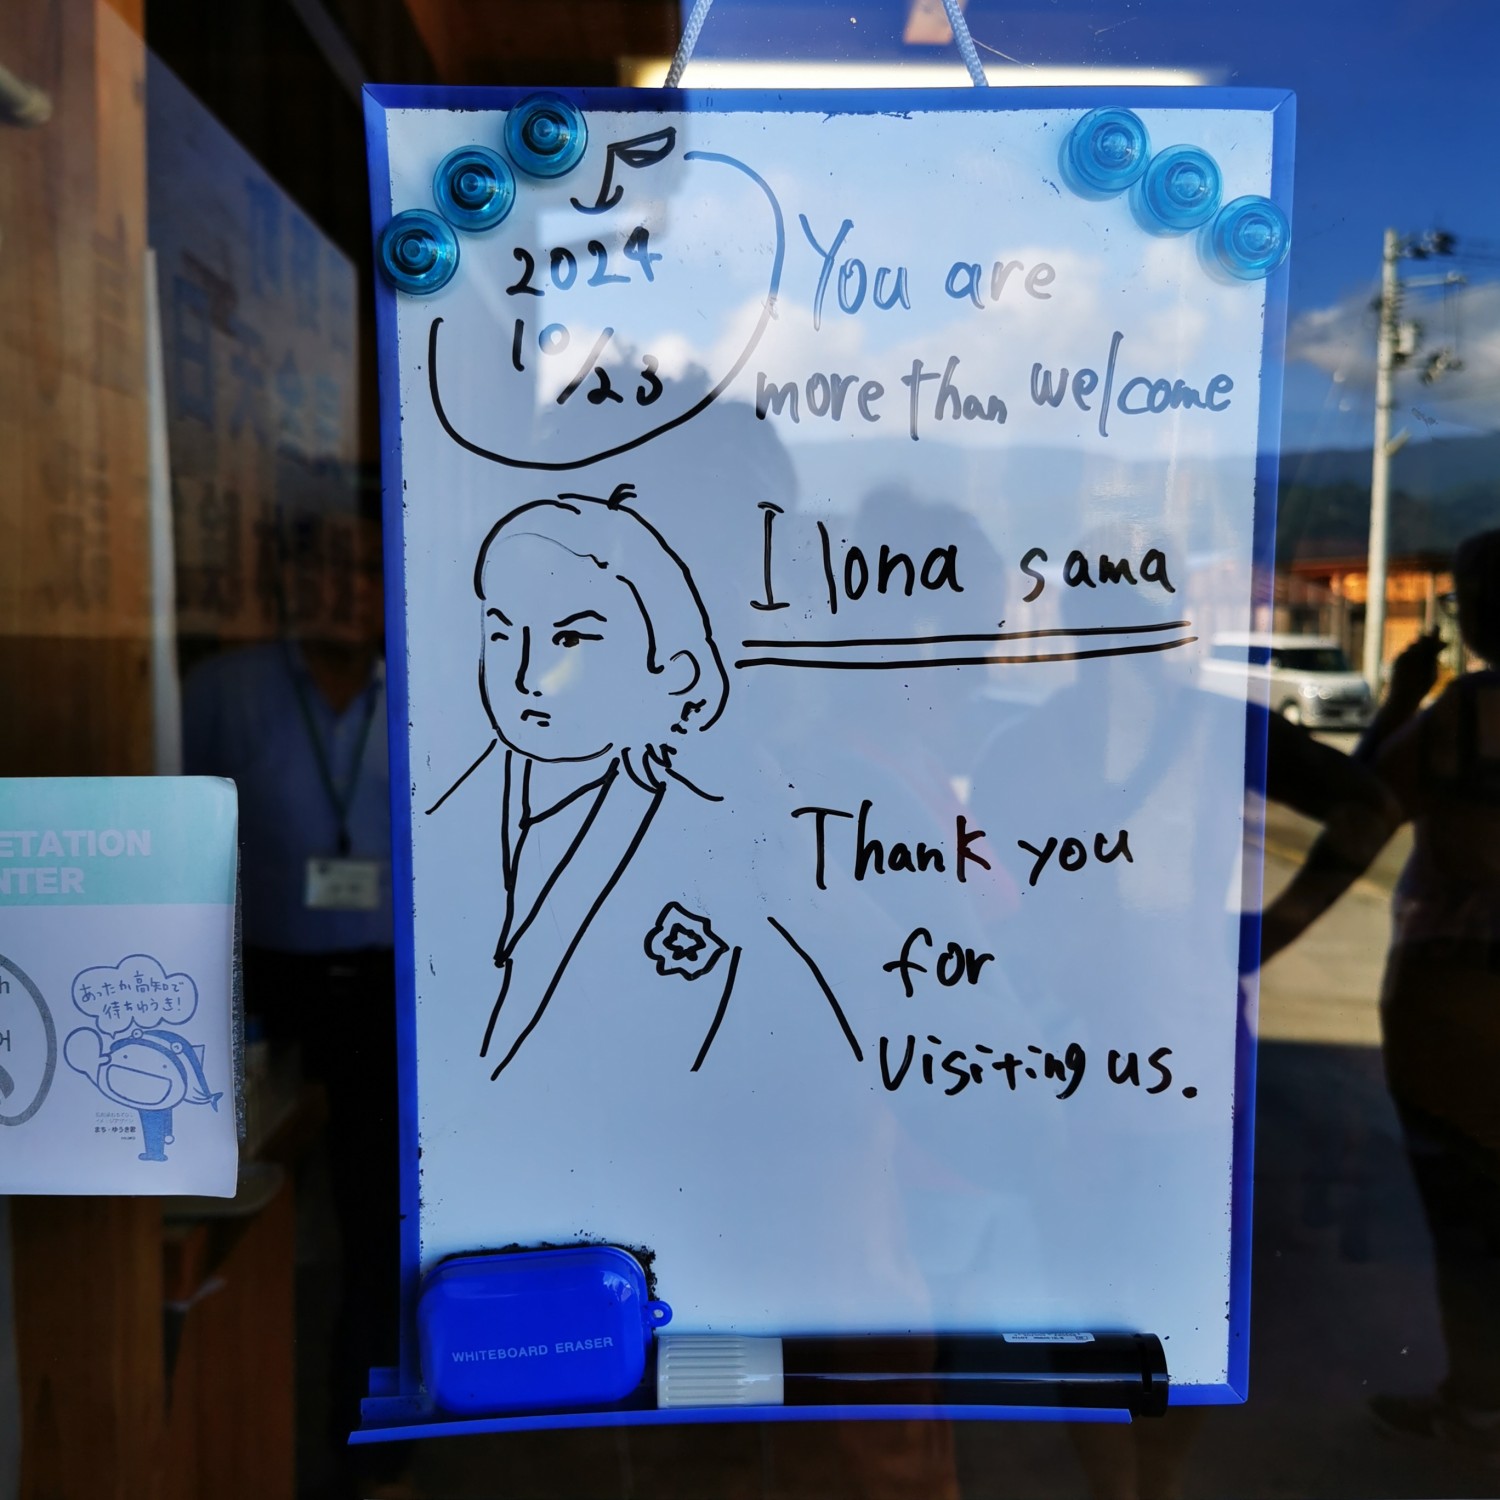 2024
10/23
You are
more than welcome
Ilona sama
Thank you
for
Visiting us.
WHITEBOARD ERASER
ETATION
NTER
h
어
あったか高知で
待ちゆうき!